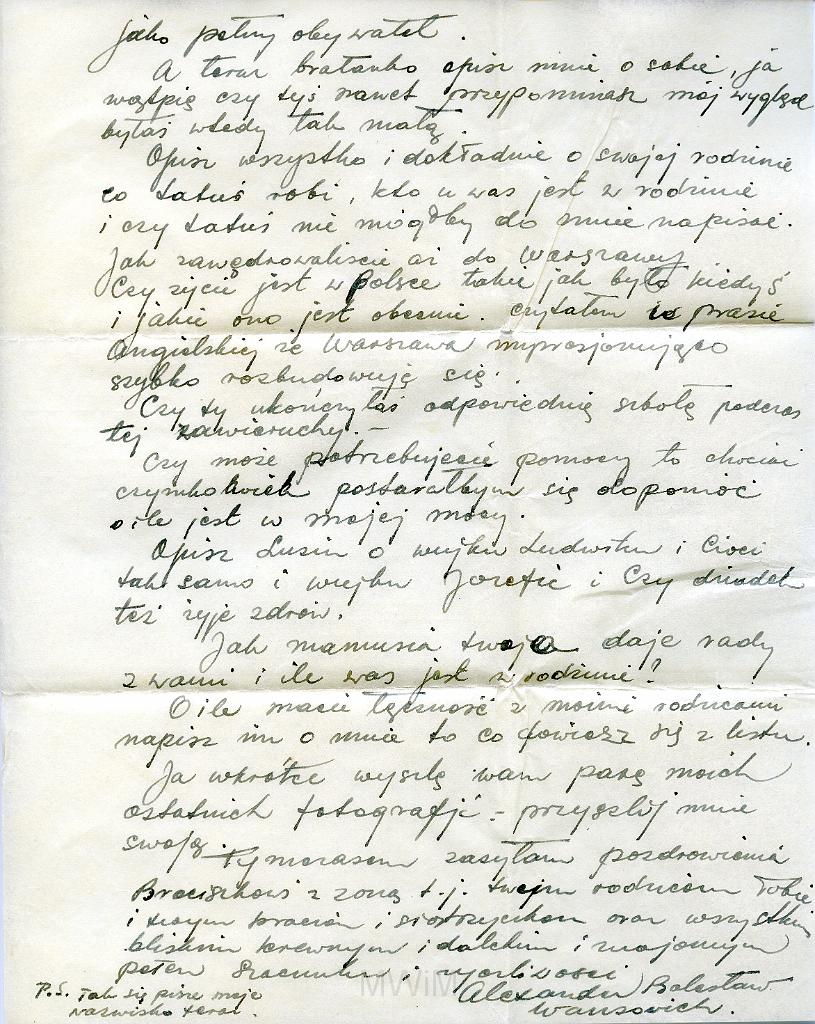 jako pełny obywatel.
A teraz bratanko opisz mnie o sobie, ja
wątpię czy tyś nawet przypominasz mój wygląd
byłaś wtedy tak małą.
Opisz wszystko i dokładnie o swojej rodzinie
co tatuś robi, kto u was jest w rodzinie
i czy tatuś nie mógłby do mnie napisać.
Jak zawędrowaliście aż do Warszawy
Czy życie jest w Polsce takie jak było kiedyś
i jakie ono jest obecnie. czytałem w prasie
Angielskiej że Warszawa impresjonująco
szybko rozbudowuję się.
Czy ty ukończyłaś odpowiednię szkołę podczas
tej zawieruchy.-
Czy może potrzebujecie pomocy to chociaż
czymkolwiek postarałbym się dopomóc
o ile jest w mojej mocy.
Opisz Lusiu o wujku Ludwiku i Cioci
tak samo i wujku Jozefie i Czy dziadek
też żyje zdrów.
Jak mamusia twoja daje rady
z wami i ile was jest w rodzinie?
O ile macie łączność z moimi rodzicami
napisz im o mnie to co dowiesz się z listu.
Ja wkrótce wyszlę wam parę moich
ostatnich fotografji - przyszlij mnie
swoją. Tymczasem zasyłam pozdrowienia
Braciszkowi z żoną t.j. twojm rodzicom Tobie
i twoym braciom i siostrzyczkom oraz wszystkim
bliskim krewnym i dalekim i znajomym
pełen szacunku i życzliwości
Alexander Bolesław
Wansovich.
P.S. Tak się pisze moje
nazwisko teraz.
MWiM